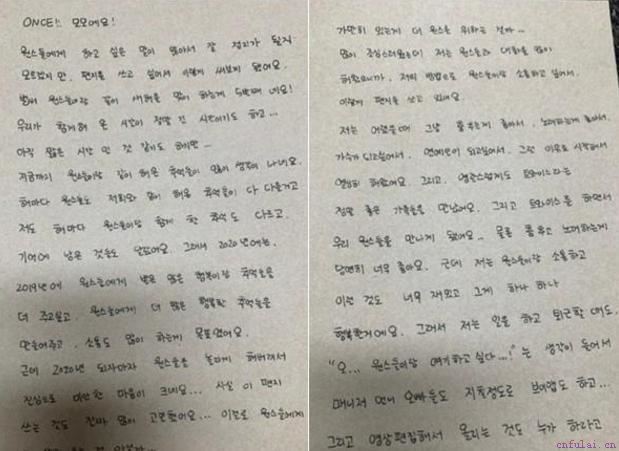 ONCE!! 모모에요!
원스들에게 하고 싶은 말이 많아서 잘 정리가 될지
모르겠지만, 편지를 쓰고 싶어서 이렇게 써보게 됐어요.
벌써 원스들이랑 같이 새해를 맞이 하는게 5번째네요!
우리가 함께해 온 시간이 정말 긴 시간이기도 하고...
아직 짧은 시간 인 것 같기도 하지만...
지금까지 원스들이랑 같이 해온 추억들이 많이 생각이 나네요.
해마다 원스들도 저희와 많이 해온 추억들이 다 다를거고
저도 해마다 원스들이랑 함께 한 추억도 다르고,
기억에 남은 것들도 다르네요. 그래서 2020년에는,
2019년에 원스들에게 받은 많은 행복이랑 추억들을
더 주고싶고, 원스들에게 더 많은 행복한 추억들을
만들어주고, 소통도 많이 하는게 목표였어요.
근데 2020년 되자마자 원스들을 놀라게 해버려서
진심으로 미안한 마음이 크네요... 사실 이 편지
쓰는 것도 진짜 많이 고민했어요... 이걸로 원스들에게
가만히 있는게 더 원스를 위하는 걸까...
많이 조심스러웠는데 저는 원스들과 대화를 많이
해왔으니까, 저의 방법으로 원스들이랑 소통하고 싶어서,
이렇게 편지를 쓰고 있어요.
저는 어렸을때 그냥 춤추는게 좋아서, 노래하는게 좋아서,
가수가 되고싶어서, 연예인이 되고싶어서, 그런 이유로 시작해서
열심히 해왔어요. 그리고, 영광스럽게도 트와이스라는
정말 좋은 가족들을 만났어요. 그리고 트와이스를 하면서
우리 원스들을 만나게 됐어요.. 물론 춤추고 노래하는게
당연히 너무 좋아요. 근데 저는 원스들이랑 소통하고
이런 것도 너무 재밌고 그게 하나 하나
행복한거에요. 그래서 저는 일을 하고 퇴근할 때도,
"오... 원스들이랑 얘기하고 싶다...!" 는 생각이 들어서
매니저 언니 오빠들도 지칠정도로 브이앱도 하고...
그리고 영상편집해서 올리는 것도 누가 하라고